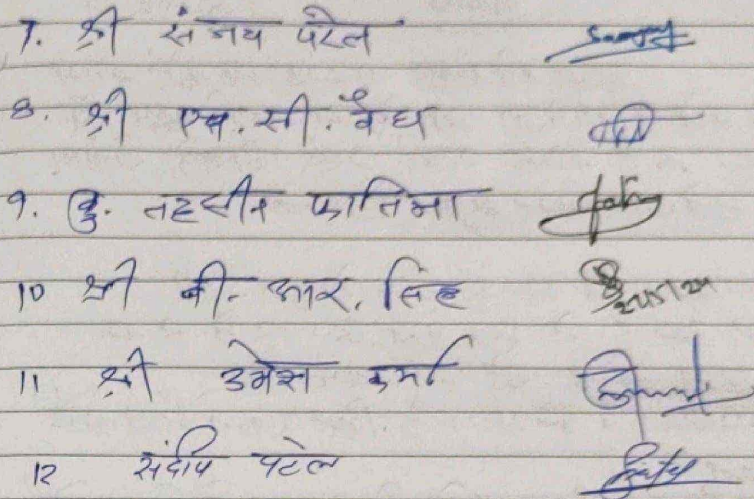 7. श्री संजय पटेल
8. श्री एच. सी. वैध
9. कु. तहसीन फातिमा
10 श्री बी. आर. सिंह
11 श्री उमेश वर्मा
12 संदीप पटेल